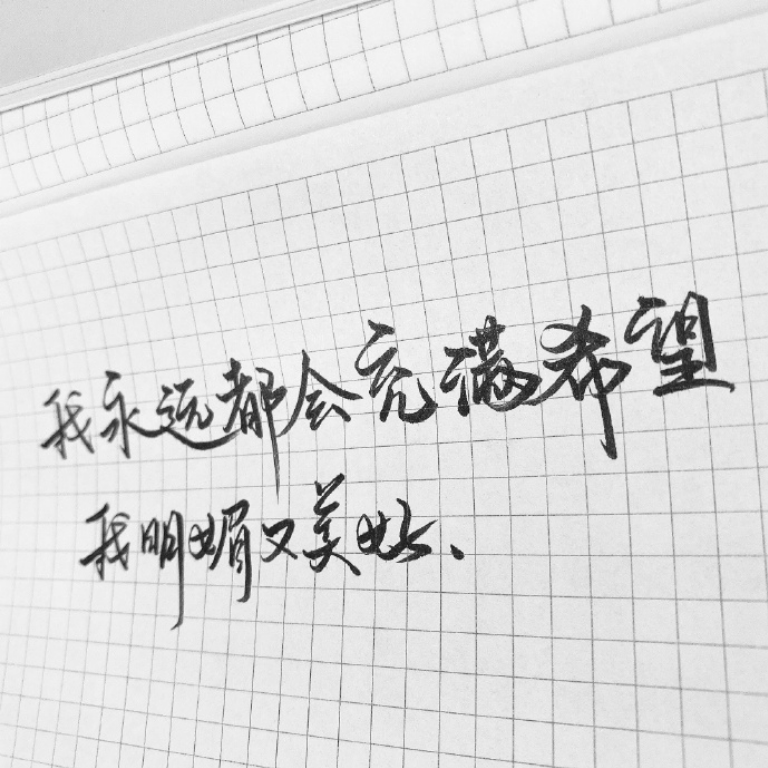 我永远都会充满希望
我明媚又美好、